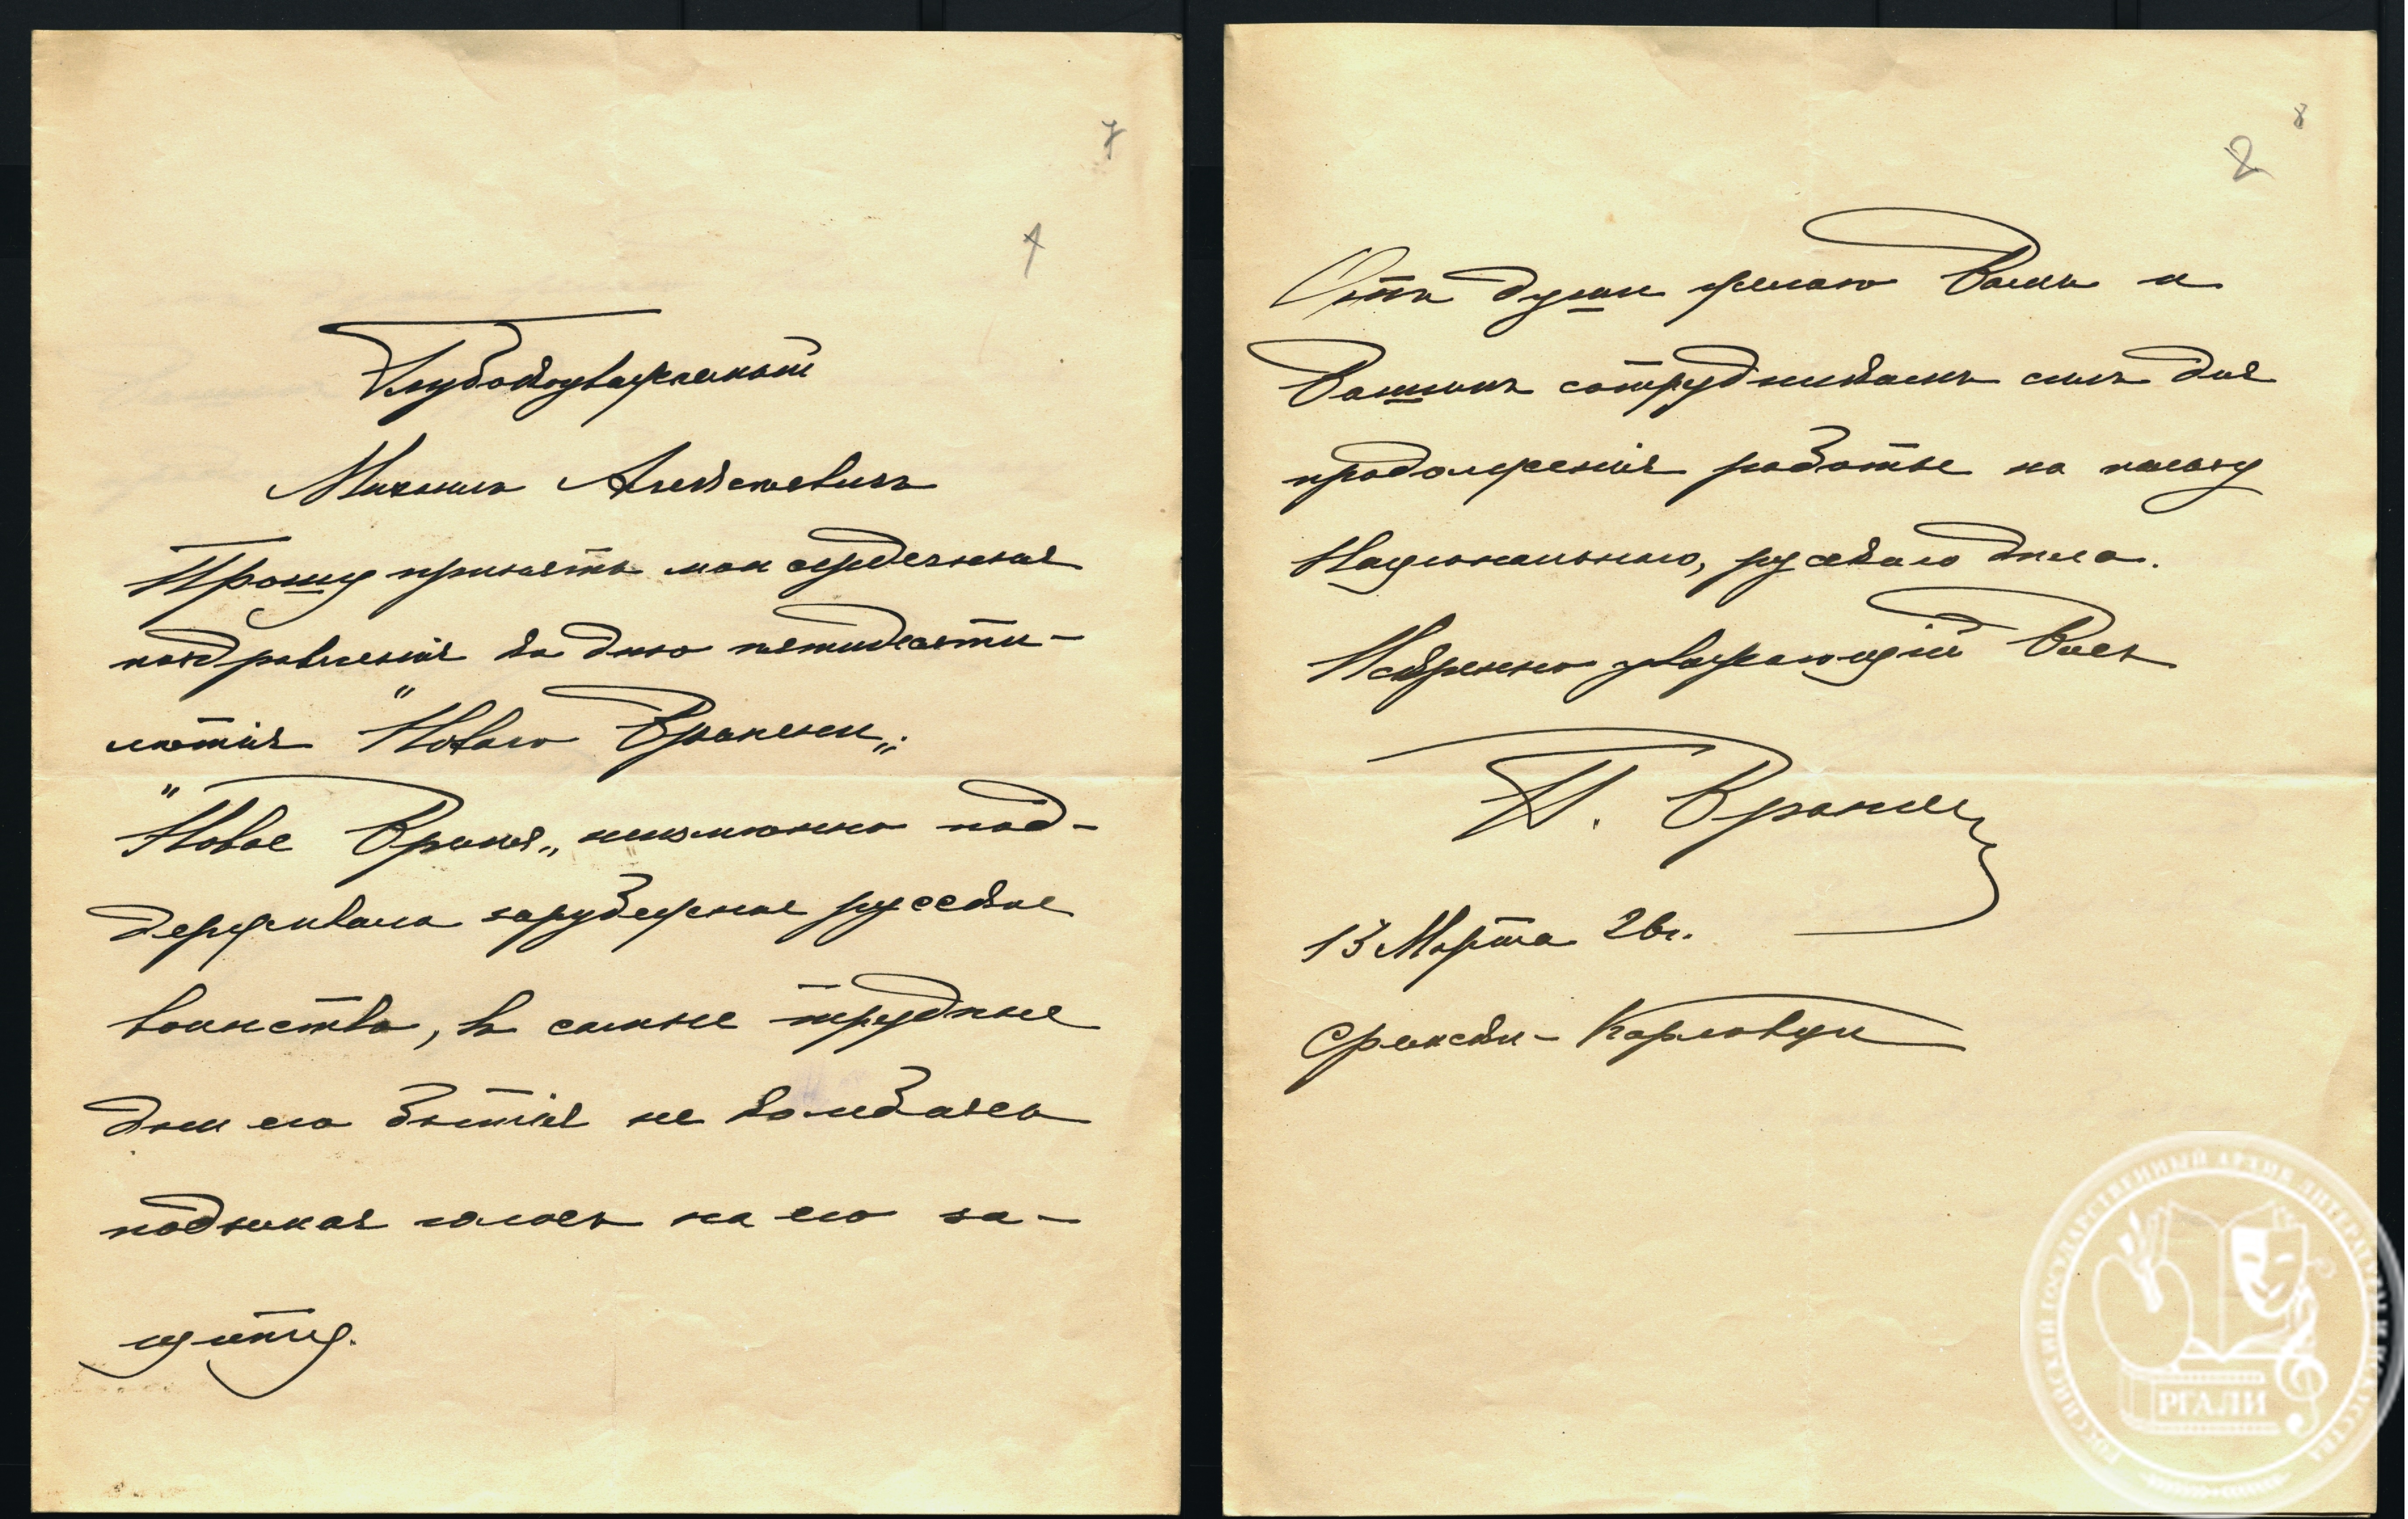 7
1
Глубокоуважаемый
Михаилъ Алексѣевичъ
Прошу принять мои сердечныя
поздравленія ко дню пятидесяти-
лѣтія "Новаго Времени„.
"Новое Время„ неизмѣнно под-
держивало зарубежное русское
воинство, въ самые трудные
дни его бытія не колеблясь
поднимая голосъ на его за-
щиту.
8
2
Отъ души желаю Вамъ и
Вашимъ сотрудникамъ силъ для
продолженія работы на пользу
Національнаго, русскаго дѣла.
Искренно уважающій Васъ
П. Врангель
13 Марта 26г.
Сремски-Карловцы
РОССИЙСКИЙ ГОСУДАРСТВЕННЫЙ АРХИВ ЛИТЕРАТУРЫ И ИСКУССТВА
РГАЛИ